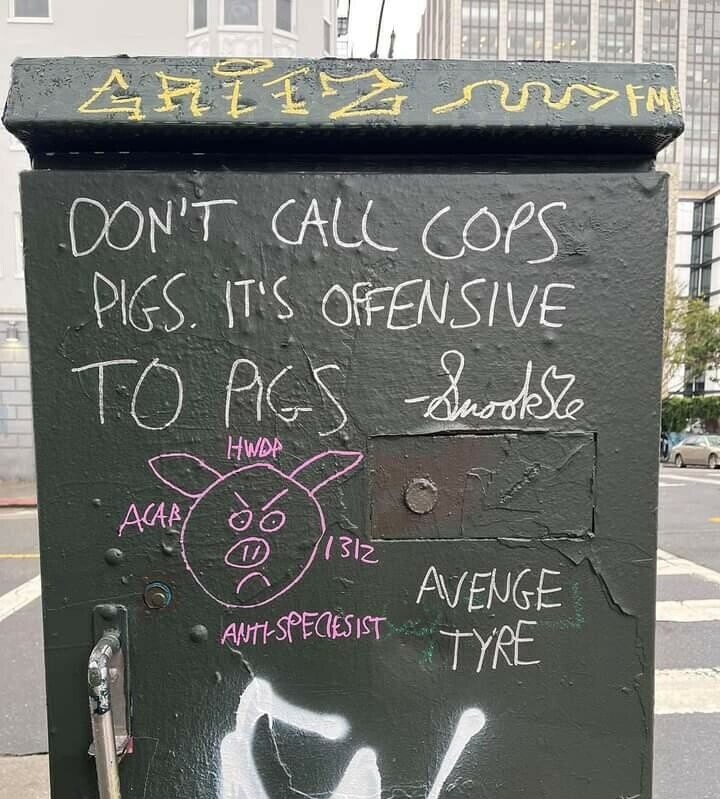 GRITZ FM
DON'T CALL COPS
PIGS. IT'S OFFENSIVE
TO PIGS -Snooksie
HWDP
ACAB
1312
ANTI-SPECIESIST
AVENGE
TYRE